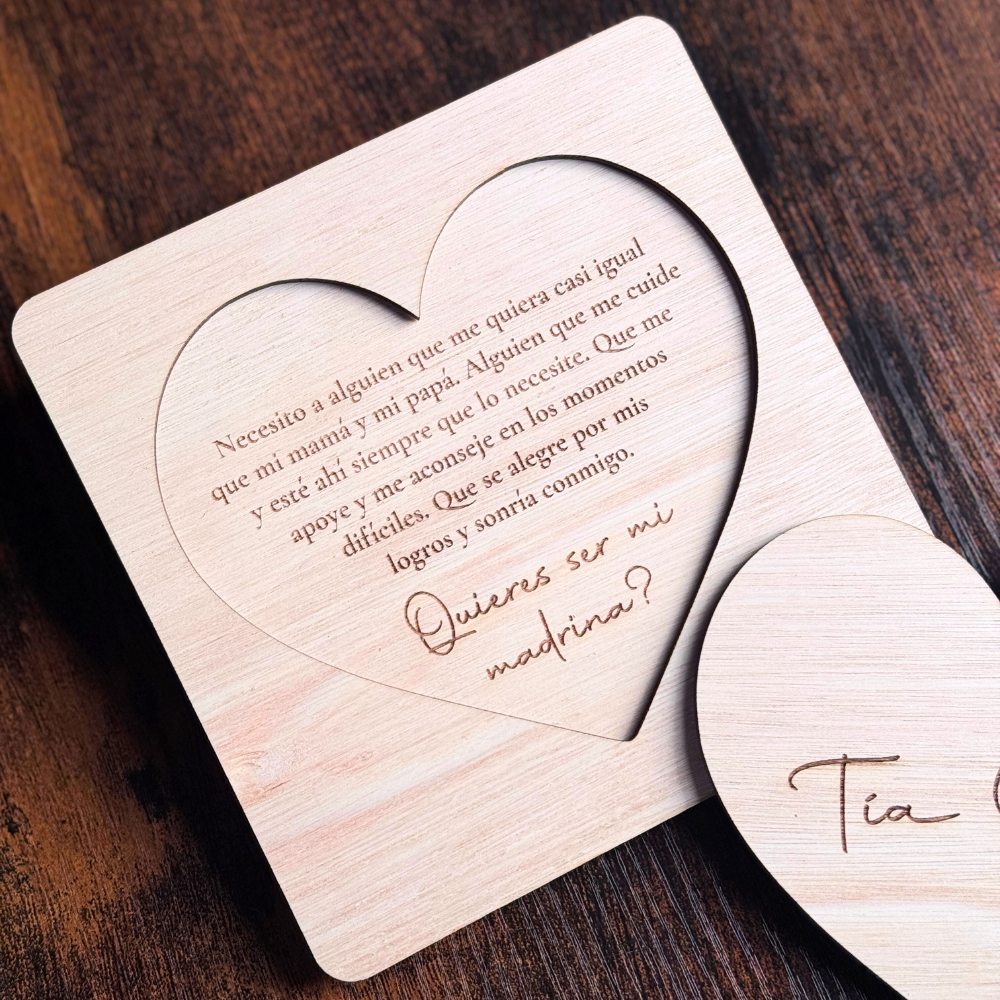 Necesito a alguien que me quiera casi igual
que mi mamá y mi papá. Alguien que me cuide
y esté ahí siempre que lo necesite. Que me
apoye y me aconseje en los momentos
difíciles. Que se alegre por mis
logros y sonría conmigo.
Quieres ser mi
madrina?
Tía